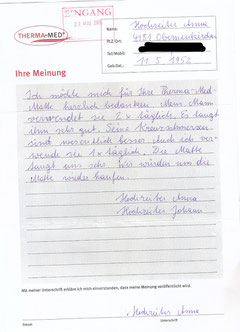 EINGANG
22. NOV. 2013
THERMA-MED®
Name: Hochreiter Anna
PLZ/Ort: 4181 Oberneukirchen
Tel/Mobil:
Geb.Dat.: 11. 5. 1952
Ihre Meinung
Ich möchte mich für Ihre Therma-Med-
Matte herzlich bedanken. Mein Mann
verwendet sie 2 x täglich. Es taugt
ihm sehr gut. Seine Kreuzschmerzen
sind wesentlich besser. Auch ich ver-
wende sie 1 x täglich. Die Matte
taugt uns sehr. Wir würden uns die
Matte wieder kaufen.
Hochreiter Anna
Hochreiter Johann
Mit meiner Unterschrift erkläre ich mich einverstanden, dass meine Meinung veröffentlicht wird.
Hochreiter Anna
Datum Unterschrift